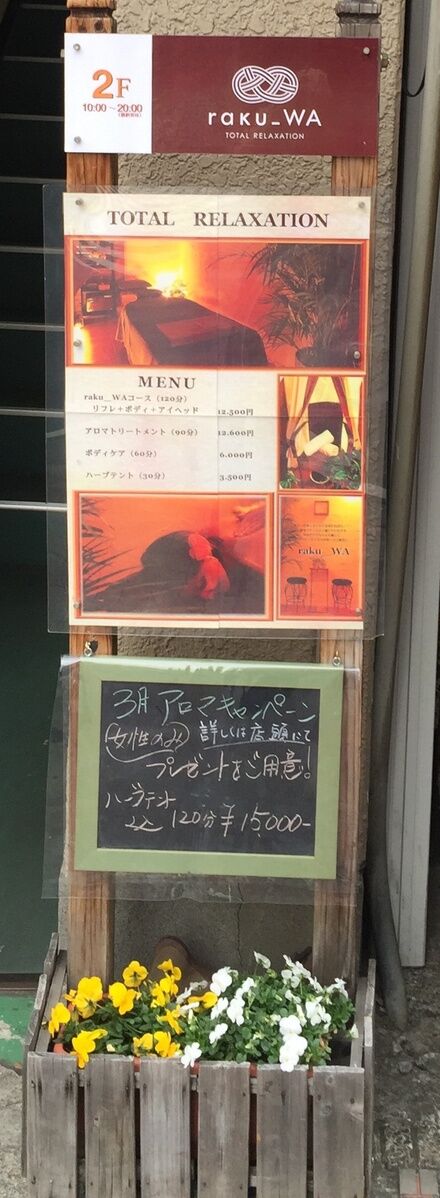 2F
10:00～20:00
raku_WA
TOTAL RELAXATION
TOTAL RELAXATION
MENU
raku__WAコース（120分）
リフレ＋ボディ＋アイヘッド 12.500円
アロマトリートメント（90分） 12.600円
ボディケア（60分） 6.000円
ハーブテント（30分） 3.500円
raku__WA
3月アロマキャンペーン
女性のみ 詳しくは店頭にて
プレゼントをご用意!
ハーブテント
込 120分 ¥15,000-